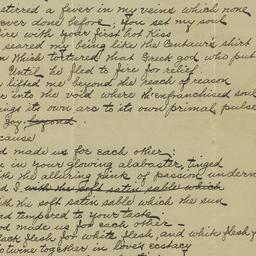 stirred a fever in my veins which none
ever done before; you set my soul
fire with your first hot kiss
seared my being like the Centaur's shirt
Which tortured that Greek god who put
Until he fled to fire for relief.
lifted me beyond the reach of reason
into the void where th'enfranchised soul
ings its own arc to its own primal pulse
joy beyond
cause
d made us for each other:
in your glowing alabaster, tinged
ith the alluring pink of passion underne
d I with the soft satin sable which
ith the soft satin sable which the sun
ad tempered to your taste.
od made us for each other—
lack flesh for white flesh, and white flesh f
to twine together in love's ecstasy